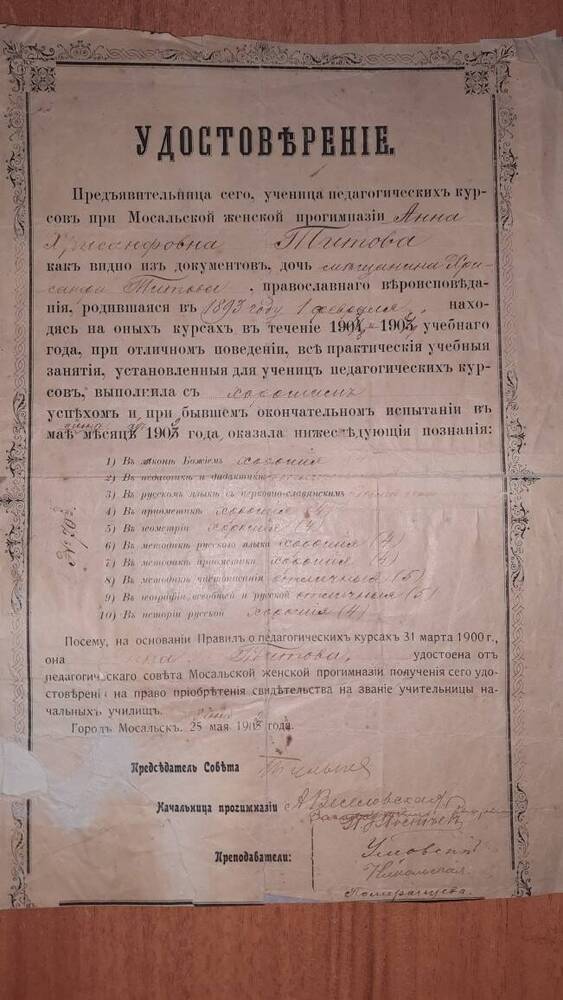 УДОСТОВѢРЕНІЕ.
Предъявительница сего, ученица педагогическихъ кур-
совъ при Мосальской женской прогимназіи Анна
Хрисанфовна Титова
какъ видно изъ документовъ, дочь мѣщанина Хри-
санфа Титова, православнаго вѣроисповѣда-
нія, родившаяся въ 1893 году 1 февраля, нахо-
дясь на оныхъ курсахъ въ теченіе учебнаго
года, при отличномъ поведеніи, всѣ практическія учебныя
занятія, установленныя для ученицъ педагогическихъ кур-
совъ, выполнила съ хорошимъ
успѣхомъ и при бывшемъ окончательномъ испытаніи въ
маѣ мѣсяцѣ года оказала нижеслѣдующія познанія:
1) Въ законѣ Божіемъ хорошія
2) Въ педагогикѣ и дидактикѣ
3) Въ русскомъ языкѣ съ церковно-славянскимъ
4) Въ ариѳметикѣ хорошія (4)
5) Въ геометріи хорошія (4)
6) Въ методикѣ русскаго языка хорошія (4)
7) Въ методикѣ ариѳметики хорошія (4)
8) Въ методикѣ чистописанія отличныя (5)
9) Въ географіи всеобщей и русской отличныя (5)
10) Въ исторіи русской хорошія (4)
Посему, на основаніи Правилъ о педагогическихъ курсахъ 31 марта 1900 г.,
она Титова, удостоена отъ
педагогическаго совѣта Мосальской женской прогимназіи полученія сего удо-
стовѣренія на право пріобрѣтенія свидѣтельства на званіе учительницы на-
чальныхъ училищъ.
Городъ Мосальскъ. 25 мая года.
Предсѣдатель Совѣта
Начальница прогимназіи А. Веселовская
Преподаватели:
Умовскій
Никольская
Померанцева.